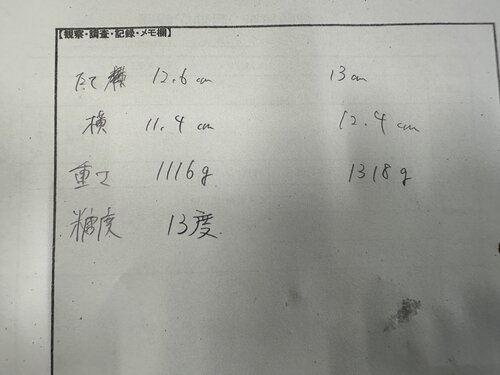 【観察・調査・記録・メモ欄】
たて 12.6cm 13cm
横 11.4cm 12.4cm
重さ 1116g 1318g
糖度 13度